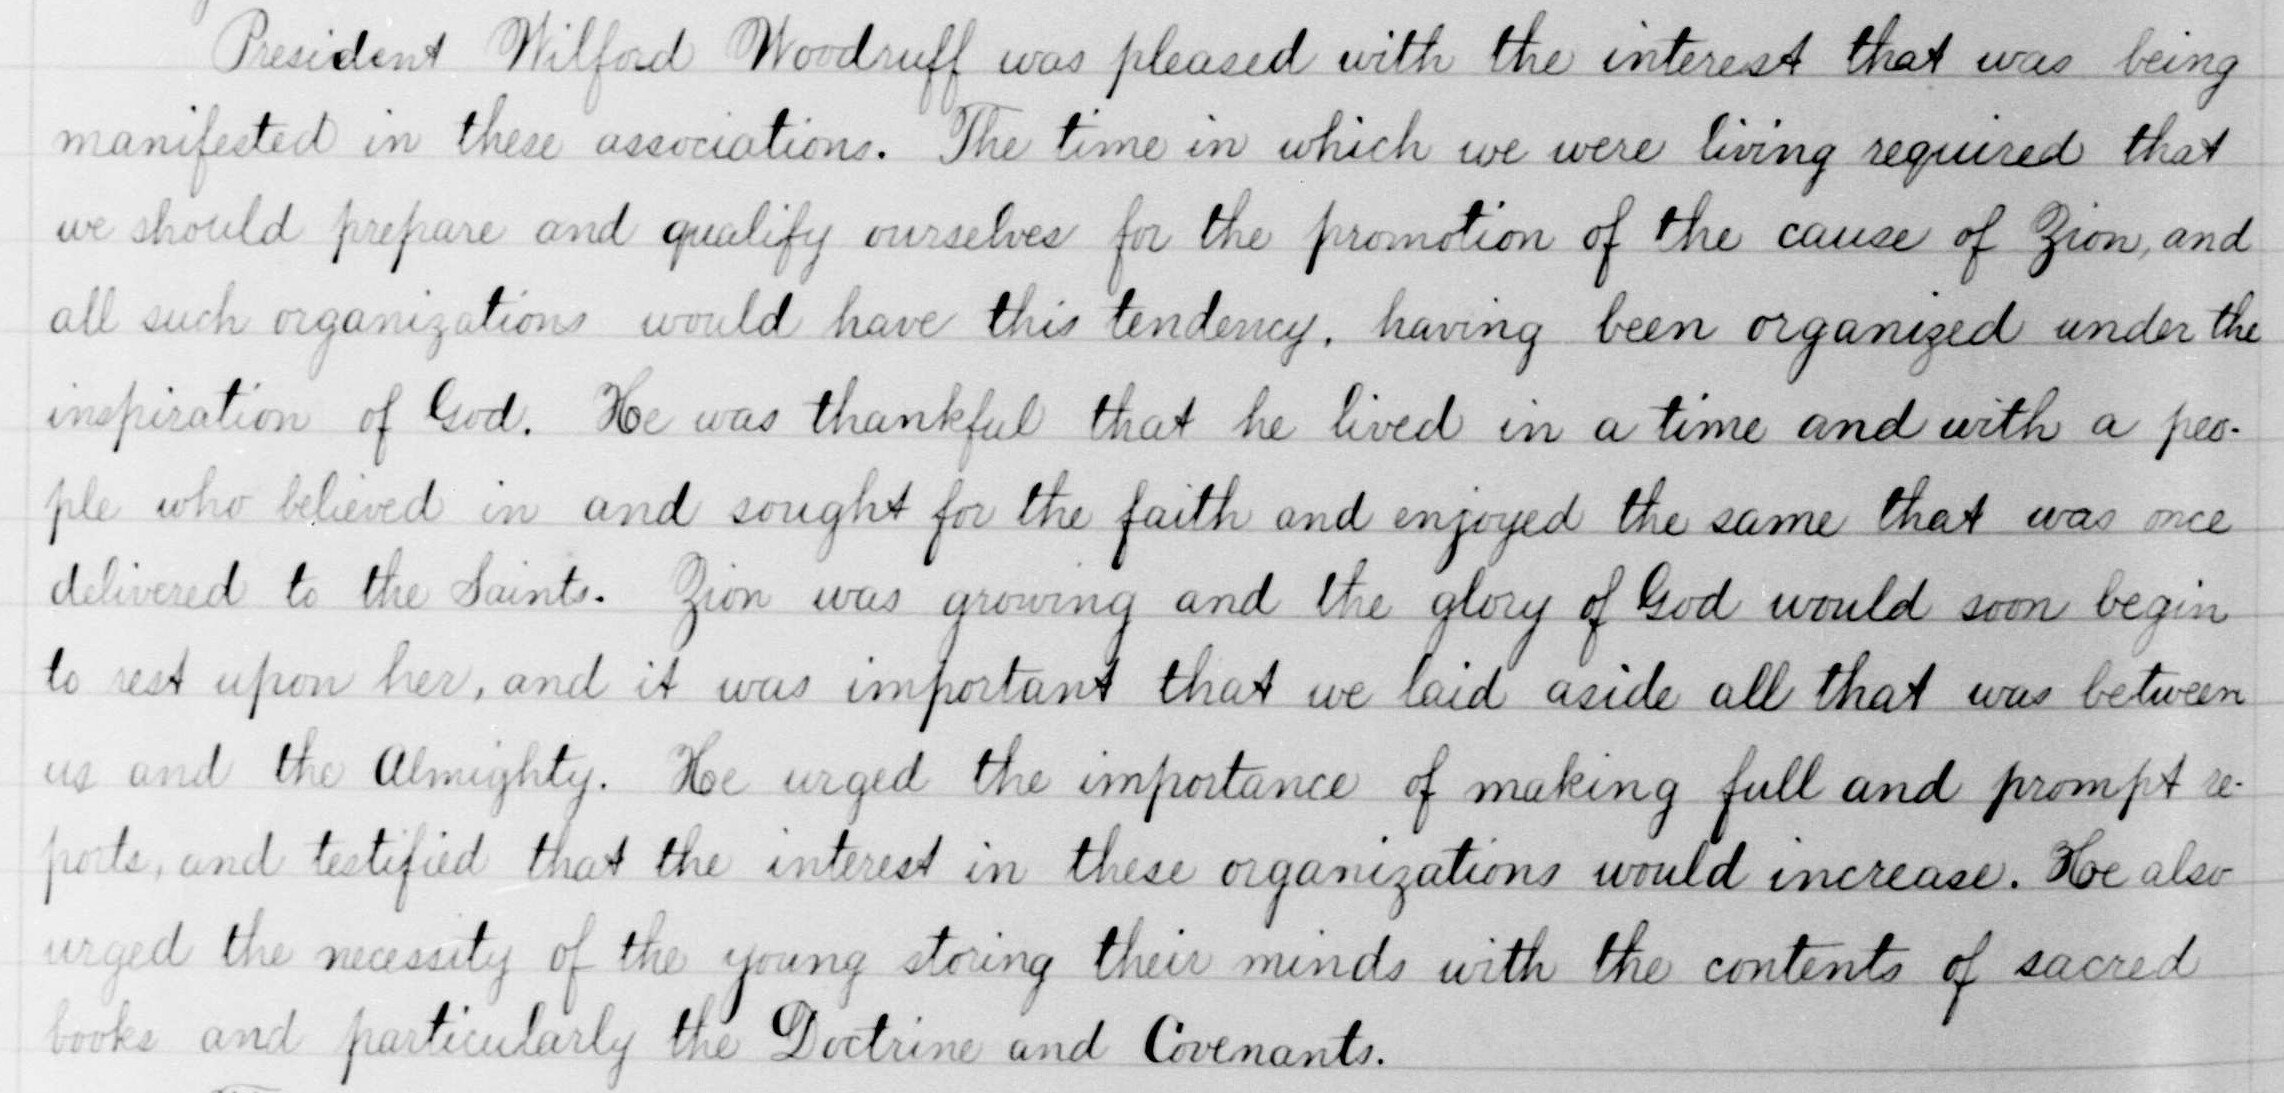 President Wilford Woodruff was pleased with the interest that was being
manifested in these associations. The time in which we were living required that
we should prepare and qualify ourselves for the promotion of the cause of Zion, and
all such organizations would have this tendency, having been organized under the
inspiration of God. He was thankful that he lived in a time and with a peo-
ple who believed in and sought for the faith and enjoyed the same that was once
delivered to the Saints. Zion was growing and the glory of God would soon begin
to rest upon her, and it was important that we laid aside all that was between
us and the Almighty. He urged the importance of making full and prompt re-
ports, and testified that the interest in these organizations would increase. He also
urged the necessity of the young storing their minds with the contents of sacred
books and particularly the Doctrine and Covenants.